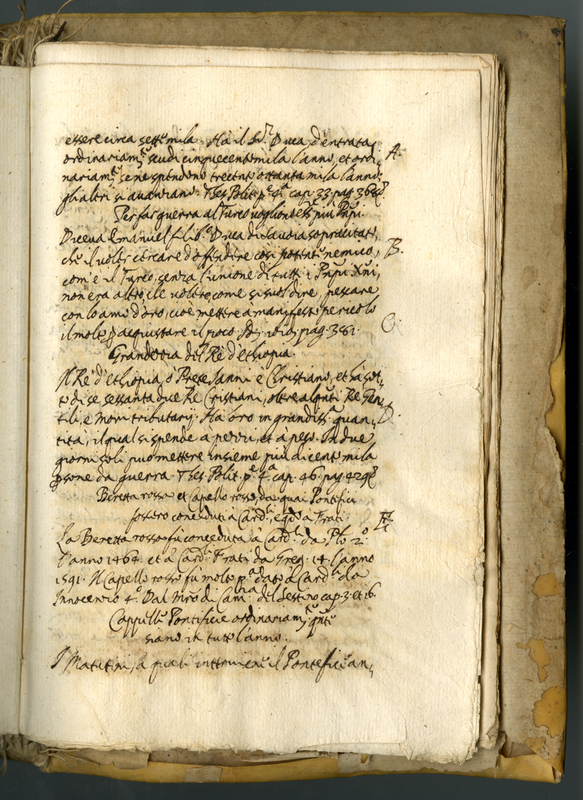 essere circa sette mila. Ha il Sr. Duca d'entrata
ordinariamte. scudi cinquecento mila l'anno, et ordi
nariamte. se ne spendono trecento ottanta mila l'anno,
gli altri si avanzano. Thes. Polit. p.e cap. 33. pag. 368
Per far guerra al Turco vogliono essr. più Pnpi
Diceva Emanuel filibo. Duca di Savoia sopracitato,
che il voler cercare d'offendere così potente nemico,
com'è il Turco, senza l'unione di tutti i Pnpi Xni,
non era altro, che volere, come si suol dire, pescare
con l'amo d'oro, cioè mettere a manifesto pericolo
il molto p acquistare il poco. pag. 381.
Grandezza del Rè d'ethiopia.
Il Rè d'ethiopia, ò Prete Ianni è Christiano, et hà sot,
to di se sessanta due Rè Cristiani, oltre alcuni Rè Gen
tili, e Mori tributarij. Ha oro in grandissa. quan,
tità, il qual si spende a pezzi, et a peso. In due
giorni soli può mettere insieme più di cento mila
psone da guerra. Thes. Polit. p.a cap. 46. pag. 429
Beretta rossa et capello rosso, da quai Pontefici
fossero conceduti à Cardli. e qdo. a Frati.
La Beretta rossa fu conceduta à Cardli. da Plo. 2.
l'anno 1464. et à Cardli. Frati da Greg. 14. l'anno
1591. Il Capello rosso fu molto pa. dato à Cardli. da
Innocenzo 4o. Dal Mro. di Cama. del Sestino cap. 3. et 16.
Cappelle Pontificie ordinariamte. qnte
siano in tutto l'anno.
I Matutini, a quali interviene il Pontefice an,
A.
B.
C.
D.